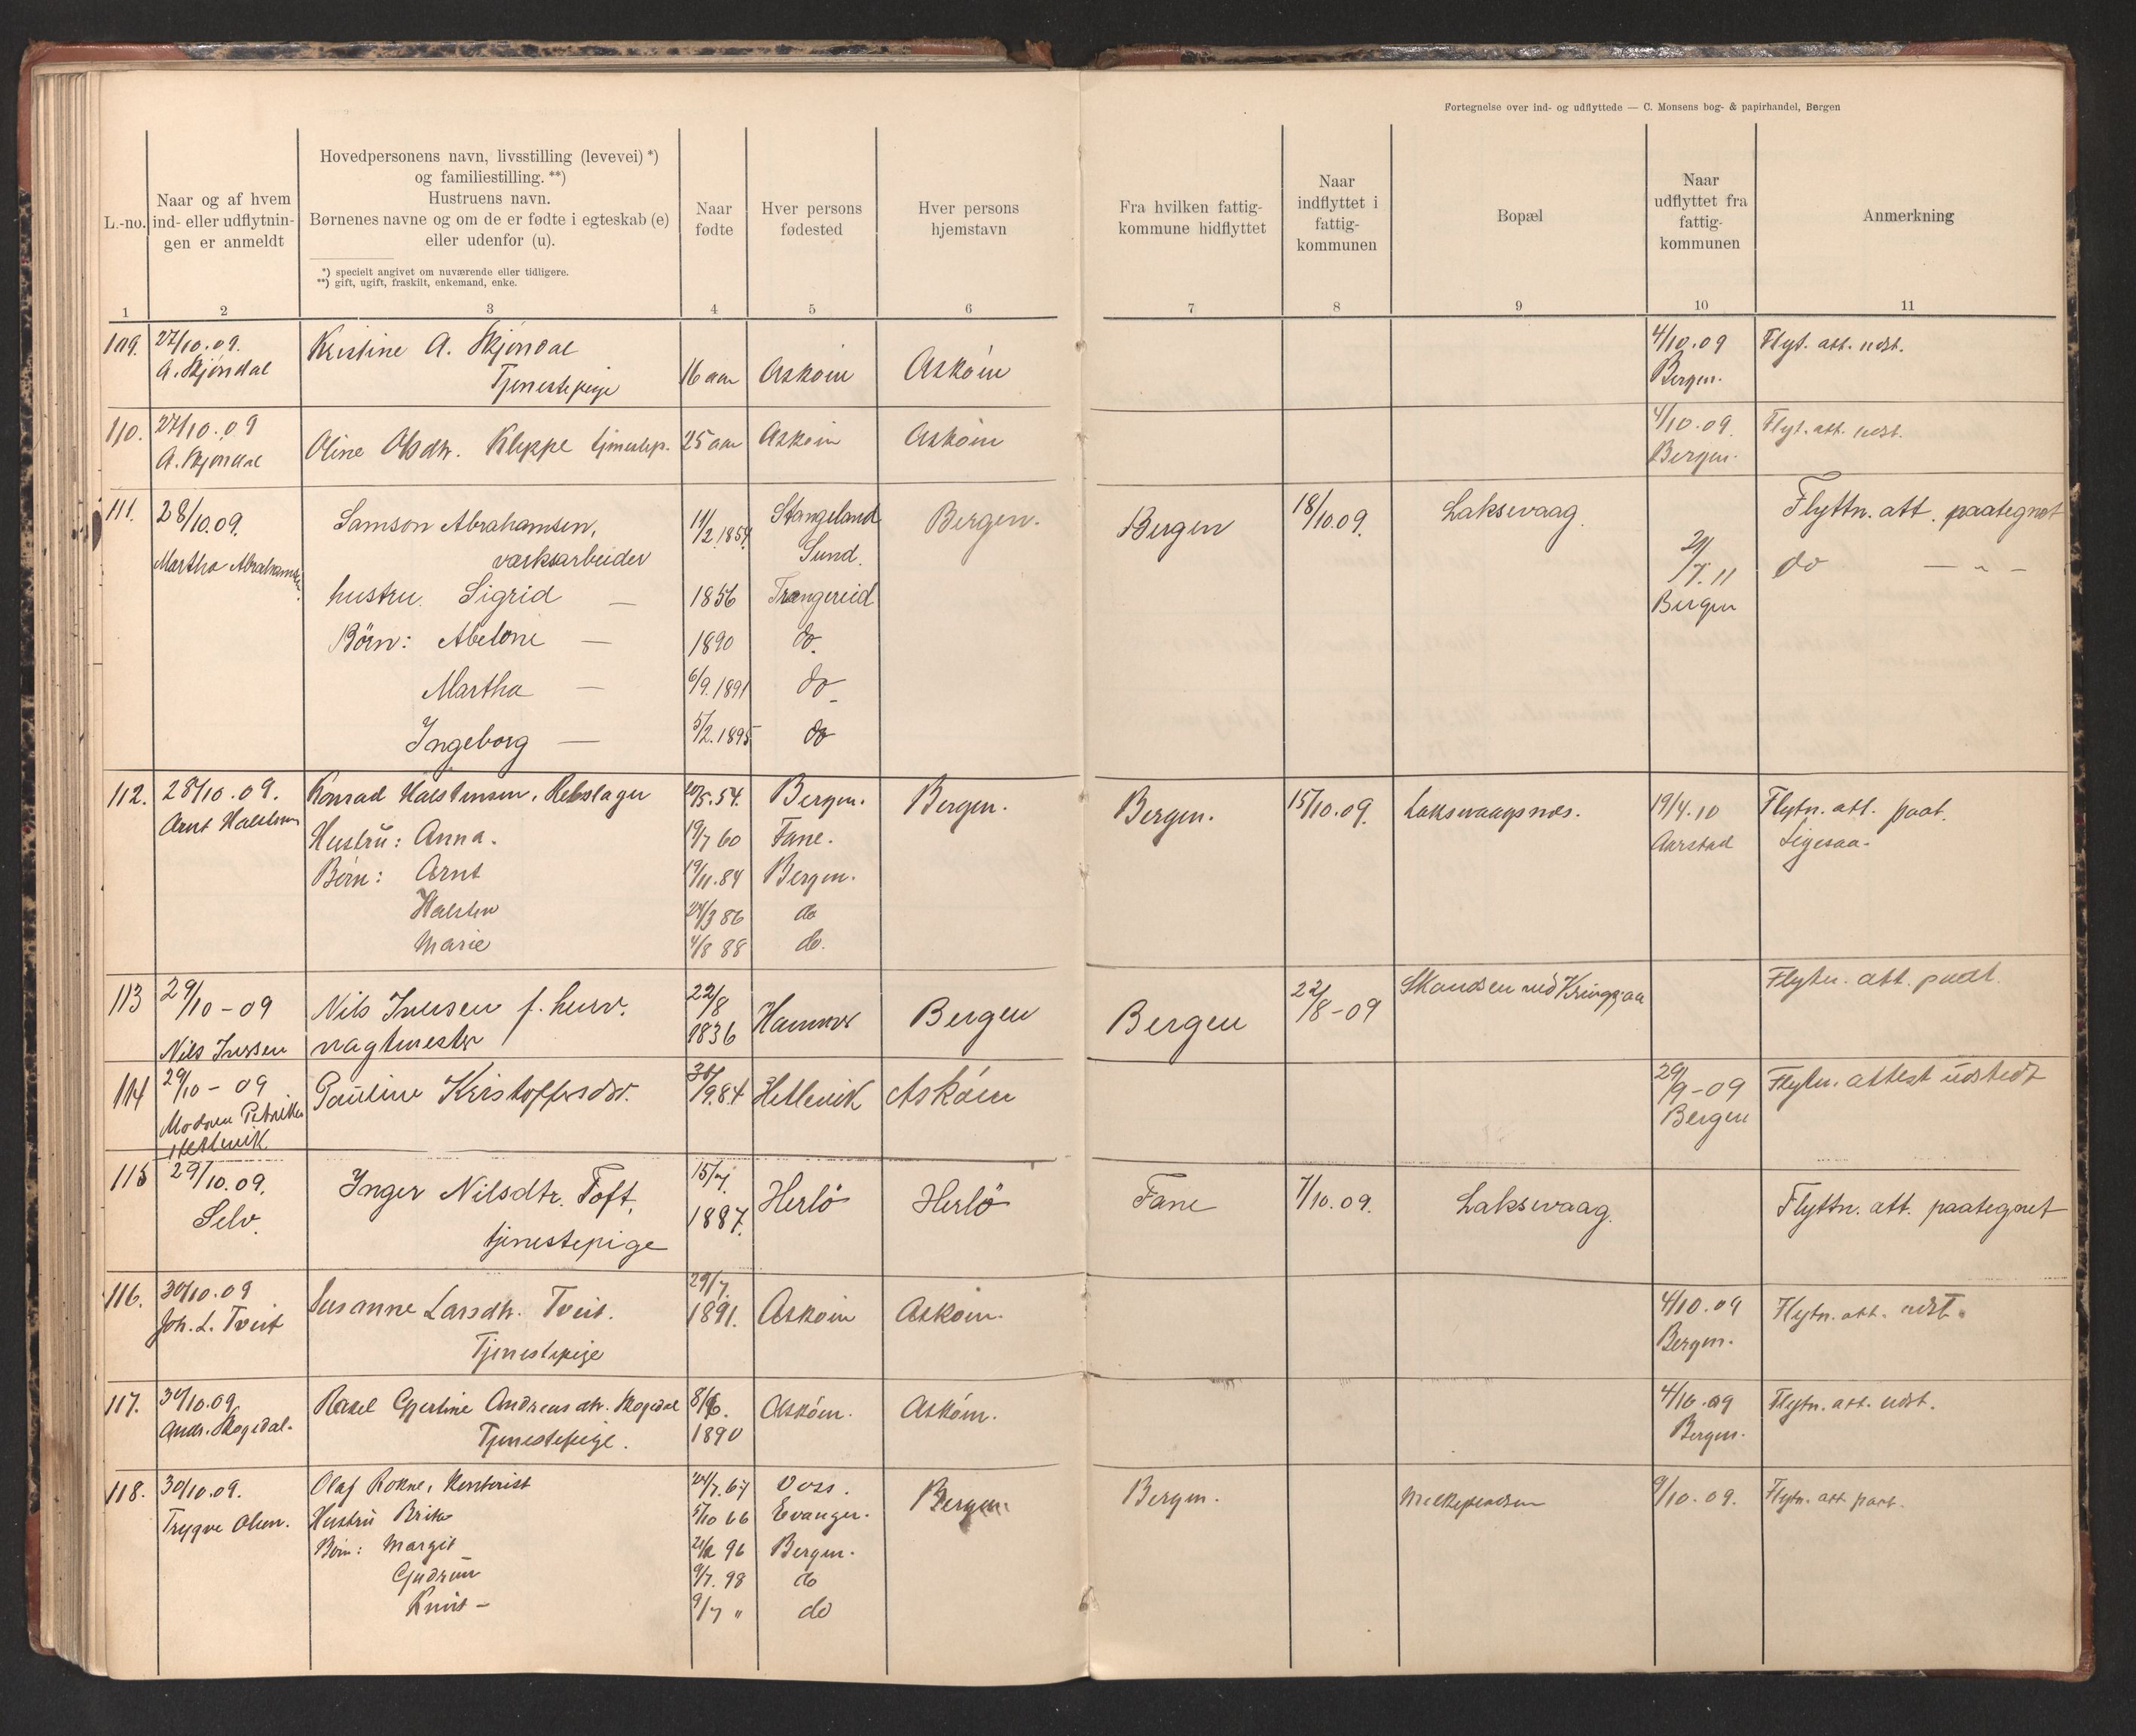 Fortegnelse over ind- og udflyttede — C. Monsens bog- & papirhandel, Bergen
L.-no.
Naar og af hvem
ind- eller udflytnin-
gen er anmeldt
Hovedpersonens navn, livsstilling (levevei) *)
og familiestilling. **)
Hustruens navn.
Børnenes navne og om de er fødte i egteskab (e)
eller udenfor (u).
*) specielt angivet om nuværende eller tidligere.
**) gift, ugift, fraskilt, enkemand, enke.
Naar
fødte
Hver persons
fødested
Hver persons
hjemstavn
Fra hvilken fattig-
kommune hidflyttet
Naar
indflyttet i
fattig-
kommunen
Bopæl
Naar
udflyttet fra
fattig-
kommunen
Anmerkning
1 2 3 4 5 6 7 8 9 10 11
109. 27/10.09. Kristine A. Skjöndal 4/10.09 Flyt. att. udst.
A. Skjöndal Tjenestepige 16 aar Asköin Asköin Bergen.
110. 27/10.09 Oline Olsdtr. Kleppe tjenestep. 25 aar Asköin Asköin 4/10.09. Flyt. att. udst.
A. Skjöndal Bergen.
111. 28/10.09. Samson Abrahamsen, 11/2.1854. Stangeland Bergen. Bergen 18/10.09. Laksevaag. Flyttn. att. paategnet
Martha Abrahamsen. værksarbeider Sund. /7.11 do — " —
hustru. Sigrid — 1856 Trengereid Bergen
Börn: Abelone — 1890 do.
Martha — 6/9.1891 do
Ingeborg — 5/2.1895 do
112. 28/10.09. Konrad Halstensen, Rebslager 20/5.54. Bergen. Bergen. Bergen. 15/10.09. Laksevaagsnes. 19/4.10 Flytn. att. paat.
Arnt Halstensen Hustru: Anna. 19/7 60 Fane. Aarstad Ligesaa.
Börn: Arnt 19/11.84 Bergen.
Halsten 24/3 86 do
Marie 4/8 88 do.
113 29/10-09 Nils Iversen f. herv. 22/8 Hammer Bergen Bergen 22/8-09 Skandsen ved Kringsjaa Flytn. att. paat.
Nils Iversen vagtmester 1836
114 29/10-09 Pauline Kristoffersdtr. 30/9.84 Hetlevik Asköin 29/9-09 Flytn. attest udstedt
Modren Petrikke Bergen
Hetlevik
115 29/10.09. Inger Nilsdtr. Toft, 15/7. Herlö Herlö Fane 7/10.09. Laksevaag. Flyttn. att. paategnet
Selv. tjenestepige 1887.
116. 30/10.09 Susanne Larsdtr. Tveit. 29/7. Asköin Asköin. 4/10.09 Flytn. att. udst.
Joh. L. Tveit Tjenestepige 1891. Bergen.
117. 30/10.09 Rakel Gjertine Andreasdtr. Skogedal 8/6. Asköin. Asköin. 4/10.09 Flytn. att. udst.
Andr. Skogedal. Tjenestepige. 1890 Bergen.
118. 30/10.09. Olaf Rokne, 24/7.67 Voss. Bergen. Bergen. 9/10.09. Flytn. att. paat.
Trygve Olsen. Hustru Brita 5/10 66 Evanger.
Börn: Margit 96 Bergen.
Gudrun 9/7. 98 do
Knut — 9/7 " do